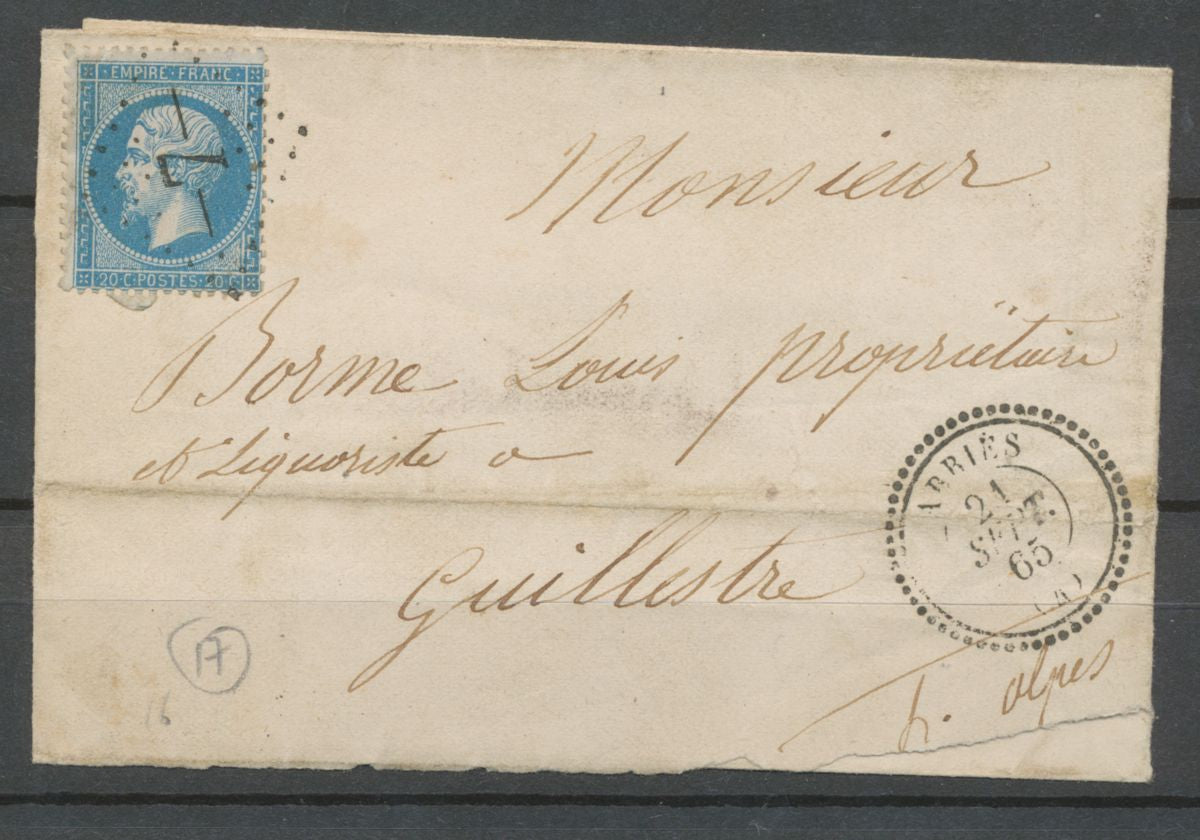 EMPIRE·FRANC·
20·C·POSTES·20·C
Monsieur
Borme Louis propriétaire
et Liquoriste a
Guillestre
h. alpes
ABRIÈS
21
SEPT.
65
(4)
17
16